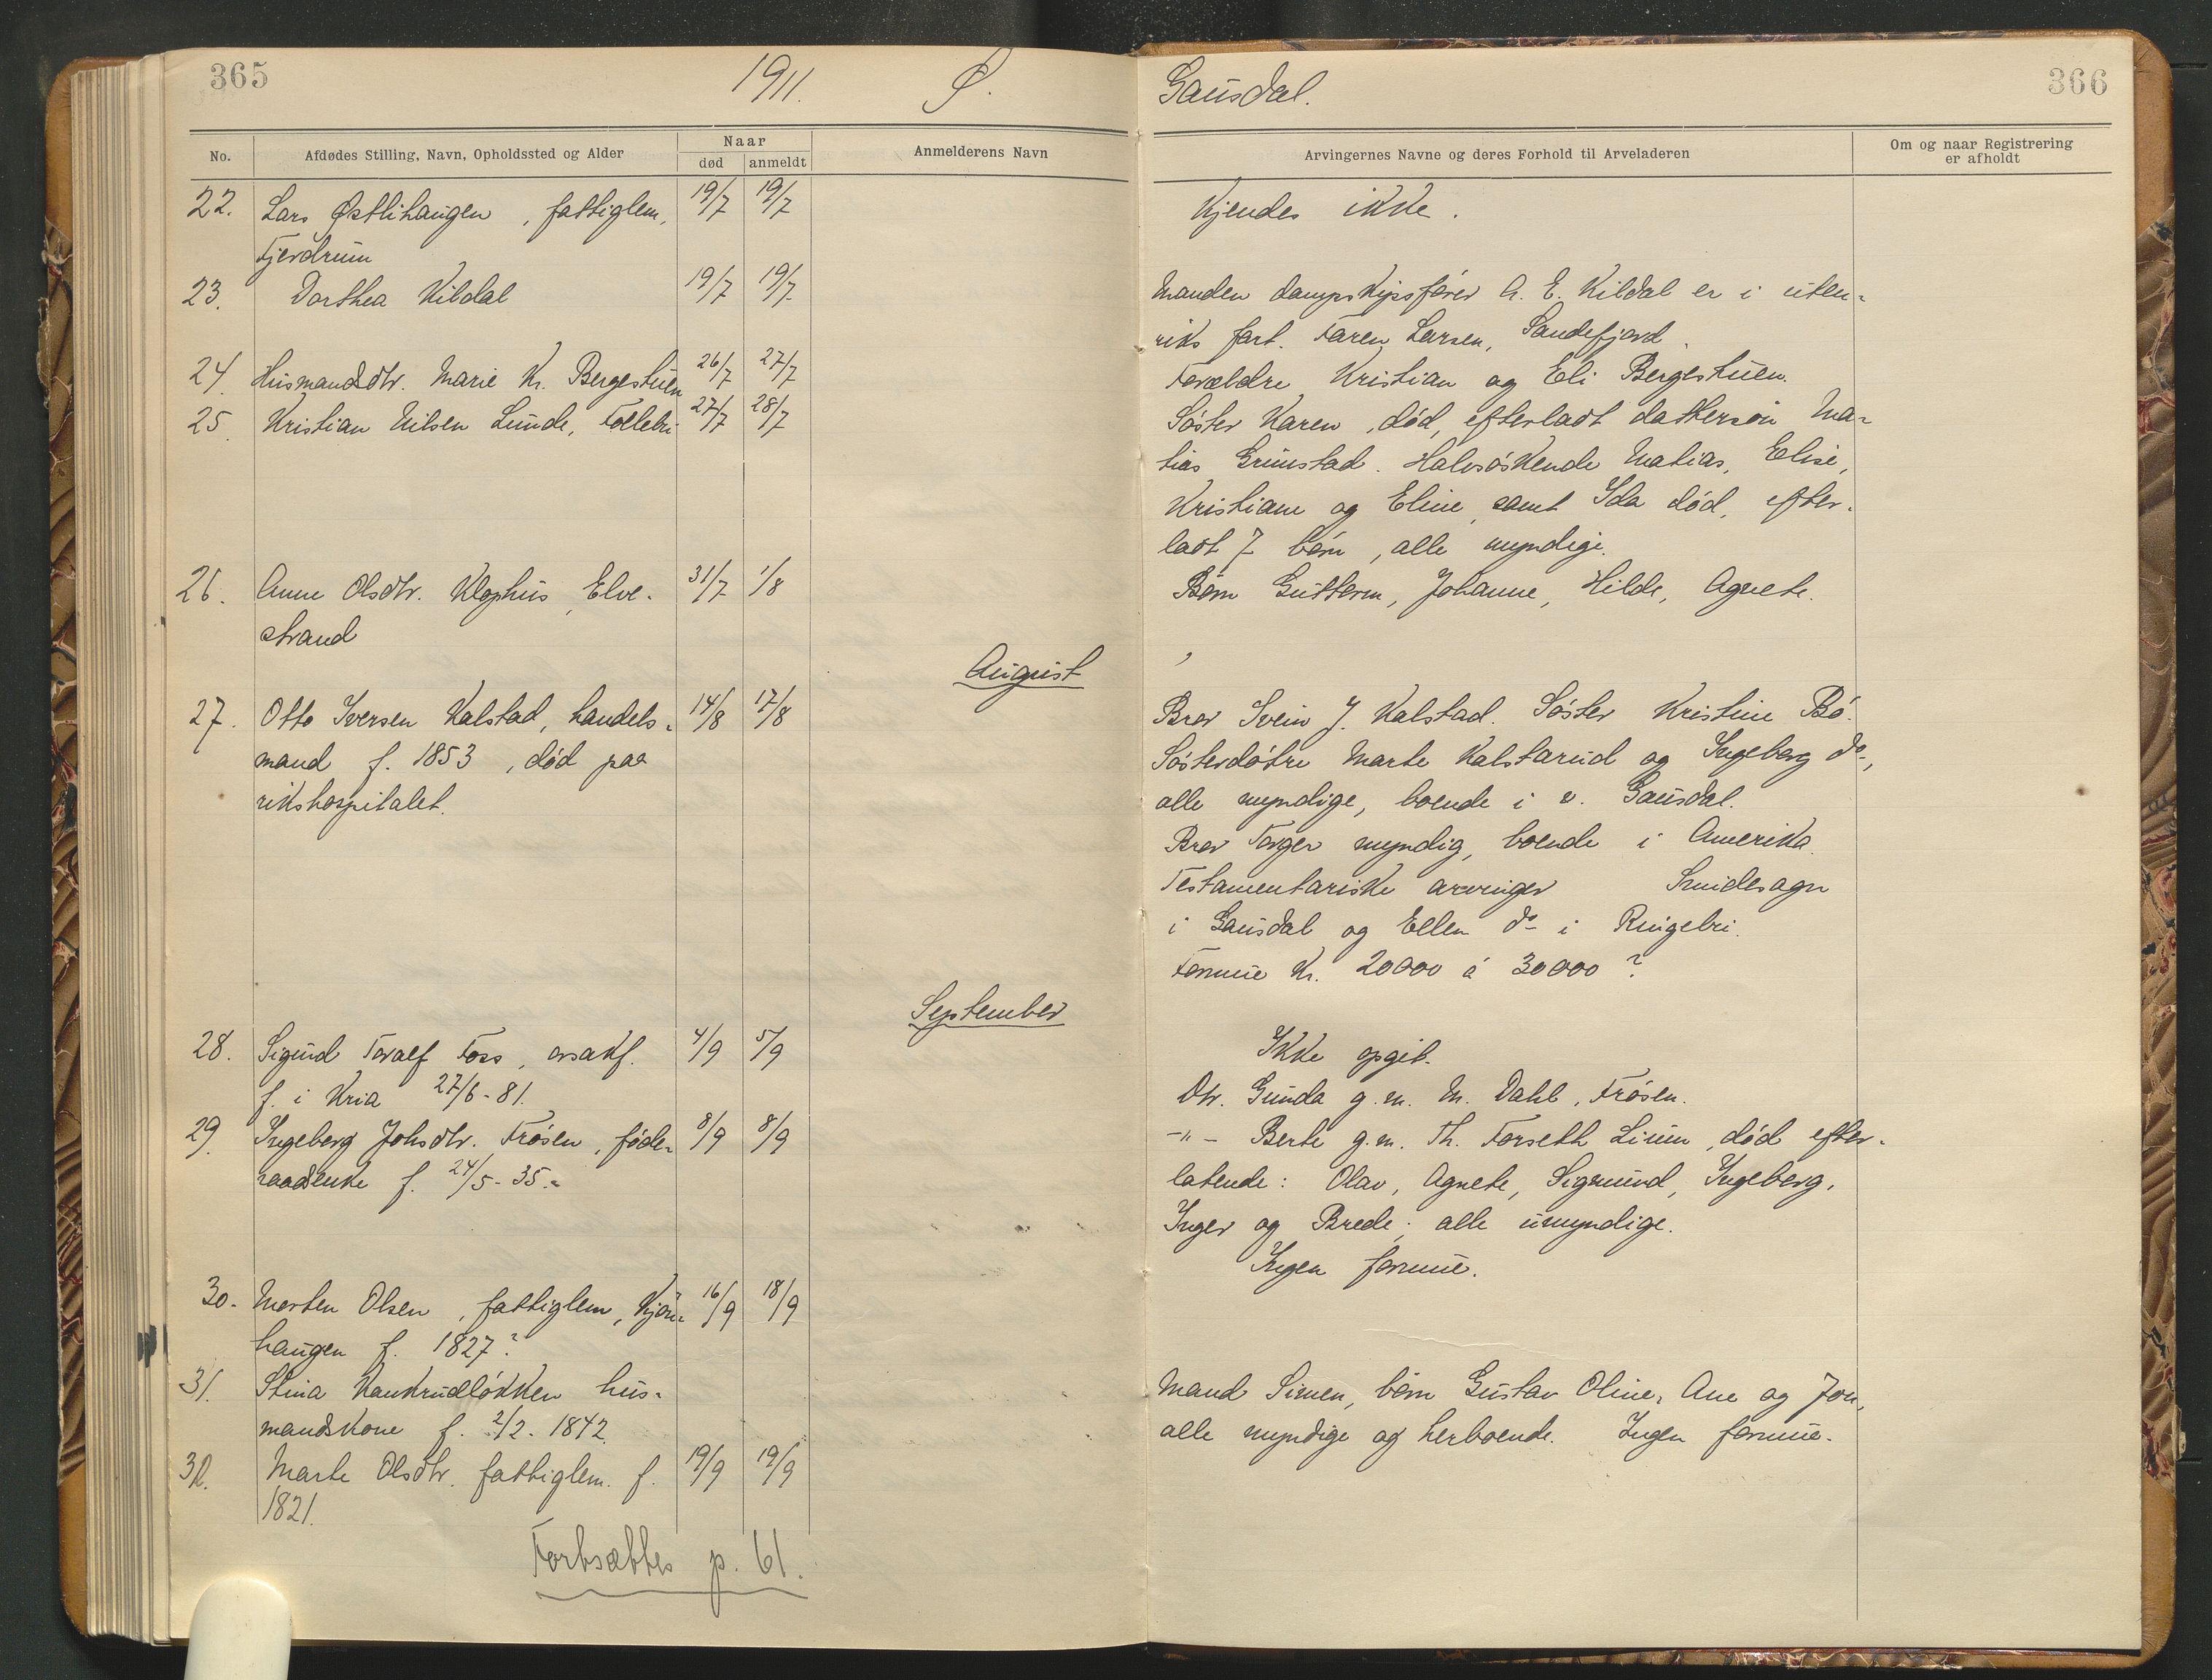 365
1911. Ø.
No.
Afdødes Stilling, Navn, Opholdssted og Alder
Naar
død
anmeldt
Anmelderens Navn
22. Lars Østlihaugen, fattiglem, 19/7 19/7
Fjerdrum
23. Dorthea Kildal 19/7 19/7
24. Husmandsdtr. Marie K. Bergestuen 26/7 27/7
25. Kristian Nilsen Lunde, Follebu 27/7 28/7
26. Anne Olsdtr. Klophus, Elve- 31/7 1/8
strand
August
27. Otto Iversen Kalstad, handels- 14/8 17/8
mand f. 1853, død paa
rikshospitalet.
September
28. Sigurd Toralf Foss, orsakf. 4/9 5/9
f. i Kria 27/6-81.
29. Ingeborg Johsdtr. Frøsen, føde- 8/9 8/9
raadsenke f. 24/5-35.-
30. Morten Olsen, fattiglem, 16/9 18/9
haugen f. 1827?
31. Stina Kankrudløkken hus-
mandskone f. 2/2-1842.
32. Marte Olsdtr. fattiglem. f. 19/9 19/9
1821.
Fortsættes p. 61.
366
Gausdal.
Arvingernes Navne og deres Forhold til Arveladeren
Om og naar Registrering
er afholdt
Kjendes ikke.
Manden dampskipsfører A. E. Kildal er i uten-
riks fart. Faren Larsen, Sandefjord.
Forældre Kristian og Eli Bergestuen.
Søster Karen, død, efterladt dattersøn Ma-
tias Grimstad. Halvsøskende Matias, Elise,
Kristiane og Eline, samt Ida død, efter-
ladt 7 børn, alle myndige.
Børn Guttorm, Johanne, Hilde, Agnete.
Bror Svein J. Kalstad. Søster Kristine Bø.
Søsterdøtre Marte Kalstarud og Ingeborg do,
alle myndige, boende i v. Gausdal.
Bror Torger myndig, boende i Amerika.
Testamentariske arvinger Snidesagn
i Gausdal og Ellen do i Ringebu.
Formue Kr. 20000 à 30000?
Ikke opgit.
Dtr. Gunda g.m. M. Dahl, Frøsen.
-"- Berte g.m. Th. Forseth Lium, død efter-
latende: Olav, Agnete, Sigmund, Ingeborg,
Inger og Brede; alle umyndige.
Ingen formue.
Mand Simen, børn Gustav Oline, Ane og Jon,
alle myndige og herboende. Ingen formue.